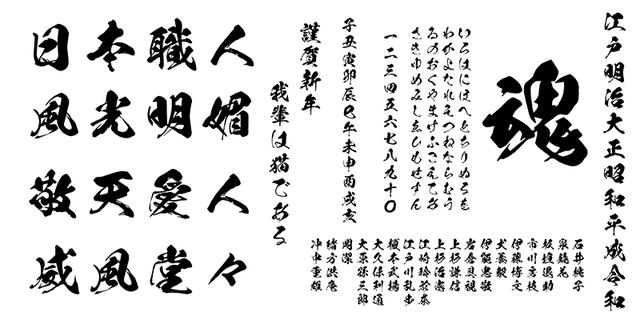 江戸明治大正昭和平成令和
魂
いろはにほへとちりぬるを
わかよたれそつねならむう
ゐのおくやまけふこえてあ
さきゆめみしゑひもせすん
一二三四五六七八九十〇
子丑寅卯辰巳午未申酉戌亥
石井純子
泉鏡花
板垣退助
市川房枝
伊藤博文
犬養毅
伊能忠敬
岩倉具視
上杉謙信
上杉治憲
江崎玲於奈
江戸川乱歩
榎本武揚
大久保利通
大原孫三郎
岡潔
緒方洪庵
沖中重雄
謹賀新年
我輩は猫である
日本職人
風光明媚
敬天愛人
威風堂々